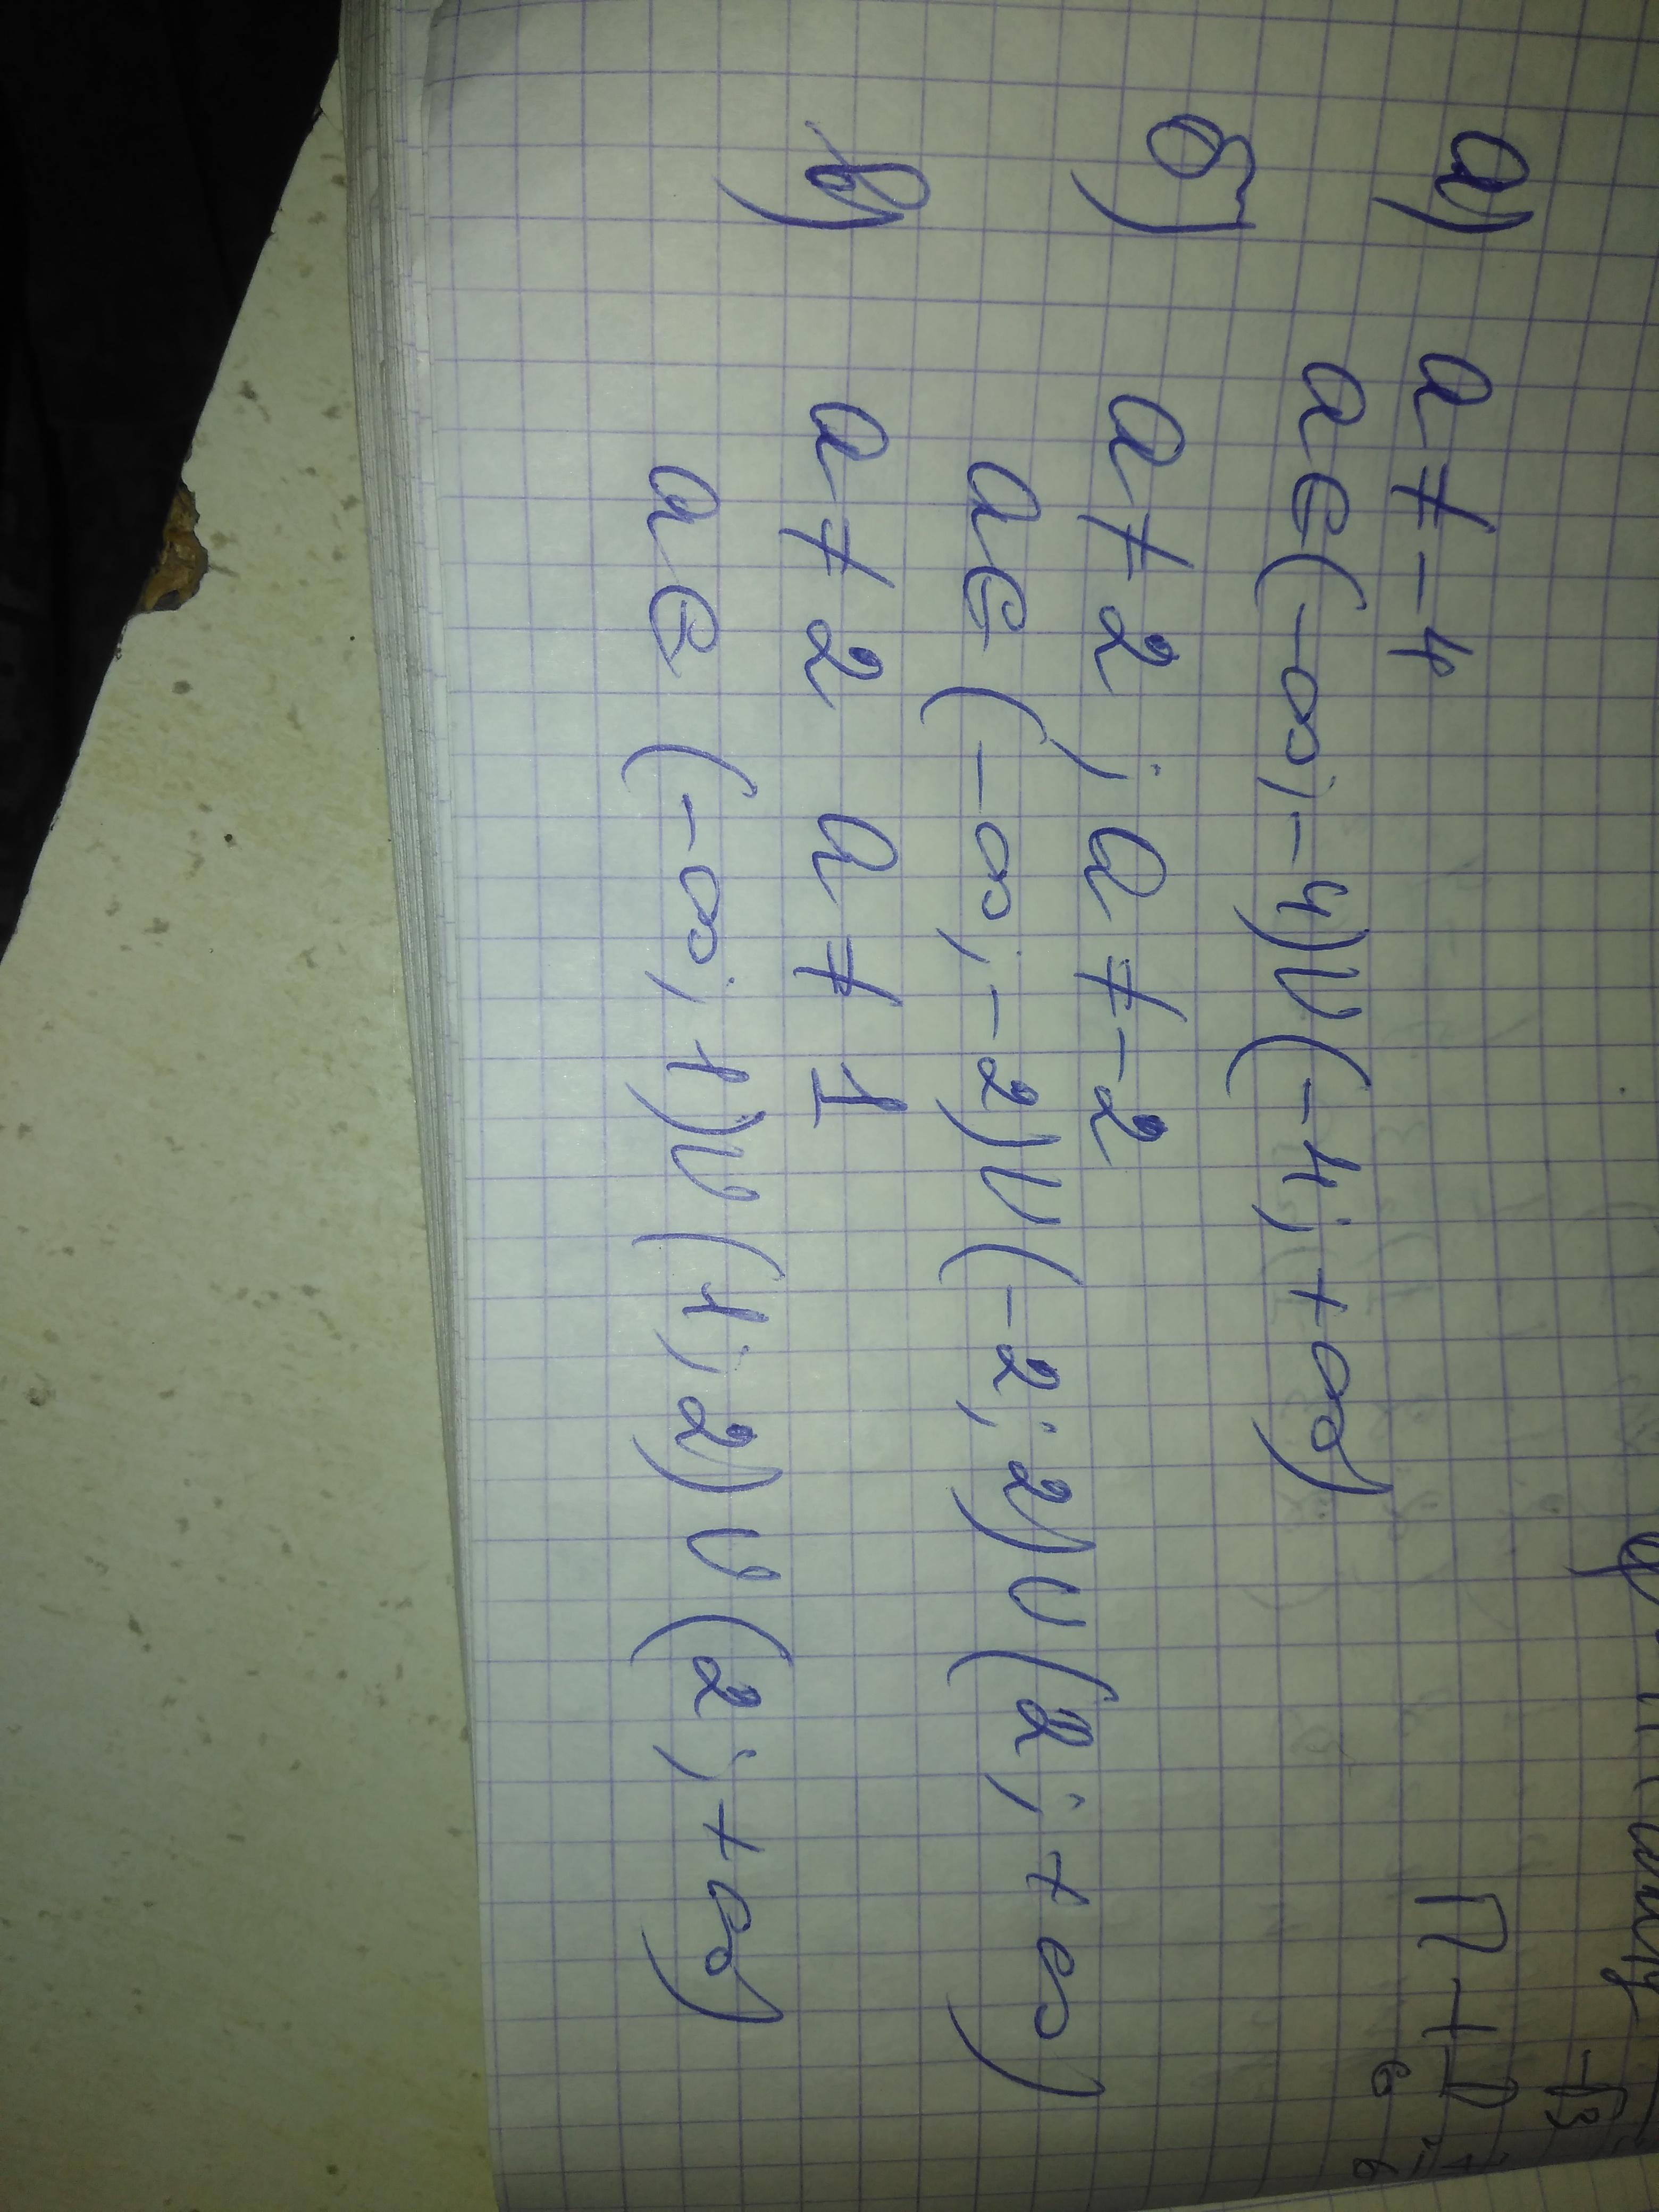 П + П/6
а) a ≠ -4
a ∈ (-∞; -4) ∪ (-4; +∞)
б) a ≠ 2; a ≠ -2
a ∈ (-∞; -2) ∪ (-2; 2) ∪ (2; +∞)
в) a ≠ 2 a ≠ 1
a ∈ (-∞; 1) ∪ (1; 2) ∪ (2; +∞)